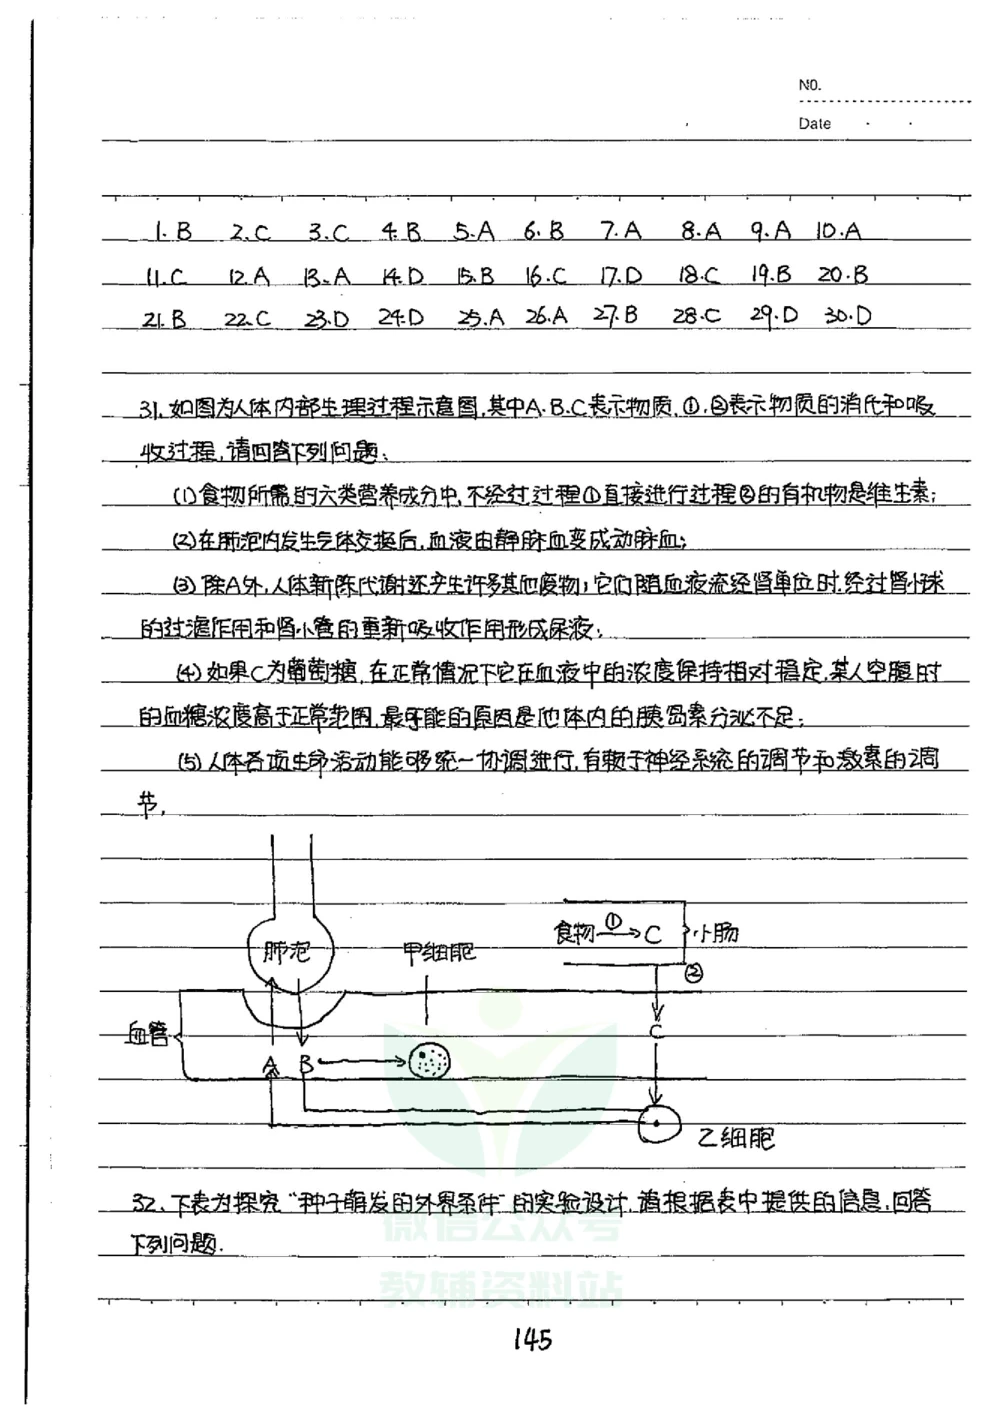 NO.
Date
1. B 2. C 3. C 4. B 5. A 6. B 7. A 8. A 9. A 10. A
11. C 12. A 13. A 14. D 15. B 16. C 17. D 18. C 19. B 20. B
21. B 22. C 23. D 24. D 25. A 26. A 27. B 28. C 29. D 30. D
31. 如图为人体内部生理过程示意图,其中A.B.C表示物质,①.②表示物质的消化和吸
收过程,请回答下列问题:
(1)食物所需的六类营养成分中,不经过过程①直接进行过程②的有机物是维生素;
(2)在肺泡内发生气体交换后,血液由静脉血变成动脉血;
(3)除A外,人体新陈代谢还产生许多其他废物,它们随血液流经肾单位时,经过肾小球
的过滤作用和肾小管的重新吸收作用形成尿液;
(4)如果C为葡萄糖,在正常情况下它在血液中的浓度保持相对稳定,某人空腹时
的血糖浓度高于正常范围,最可能的原因是他体内的胰岛素分泌不足;
(5)人体各项生命活动能够统一协调进行,有赖于神经系统的调节和激素的调
节.
肺泡 甲细胞 食物 ① C 小肠
②
血管 C
A B
乙细胞
32. 下表为探究“种子萌发的外界条件”的实验设计,请根据表中提供的信息,回答
下列问题.
微信公众号
教辅资料站
145